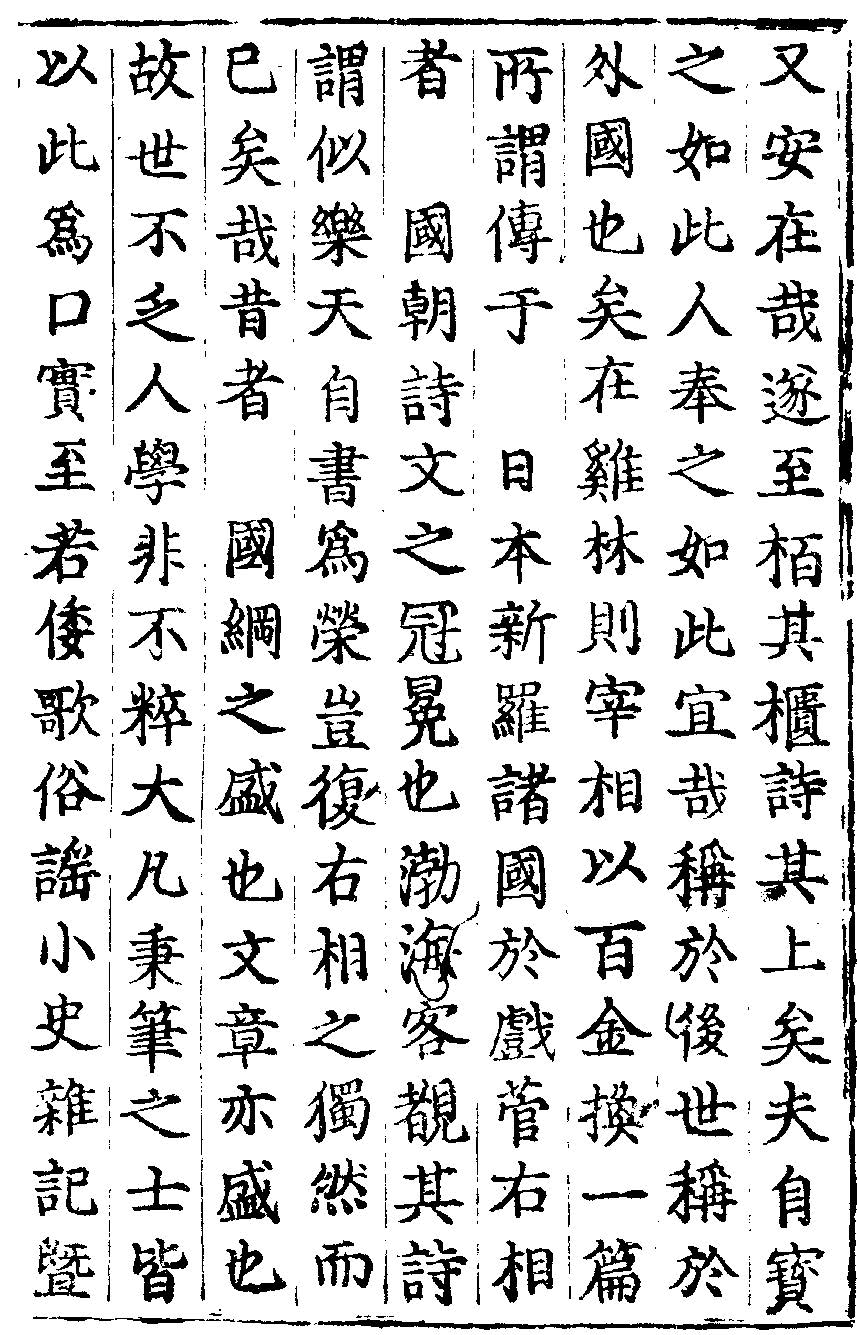 又安在哉遂至栢其櫃詩其上矣夫自寳
之如此人奉之如此宜哉稱於後世稱於
外國也矣在雞林則宰相以百金換一篇
所謂傳于　日本新羅諸國於戲菅右相
者　國朝詩文之冠冕也渤海客覩其詩
謂似樂天自書爲榮豈復右相之獨然而
已矣哉昔者　國綱之盛也文章亦盛也
故世不乏人學非不粹大凡秉筆之士皆
以此爲口實至若倭歌俗謡小史雜記曁